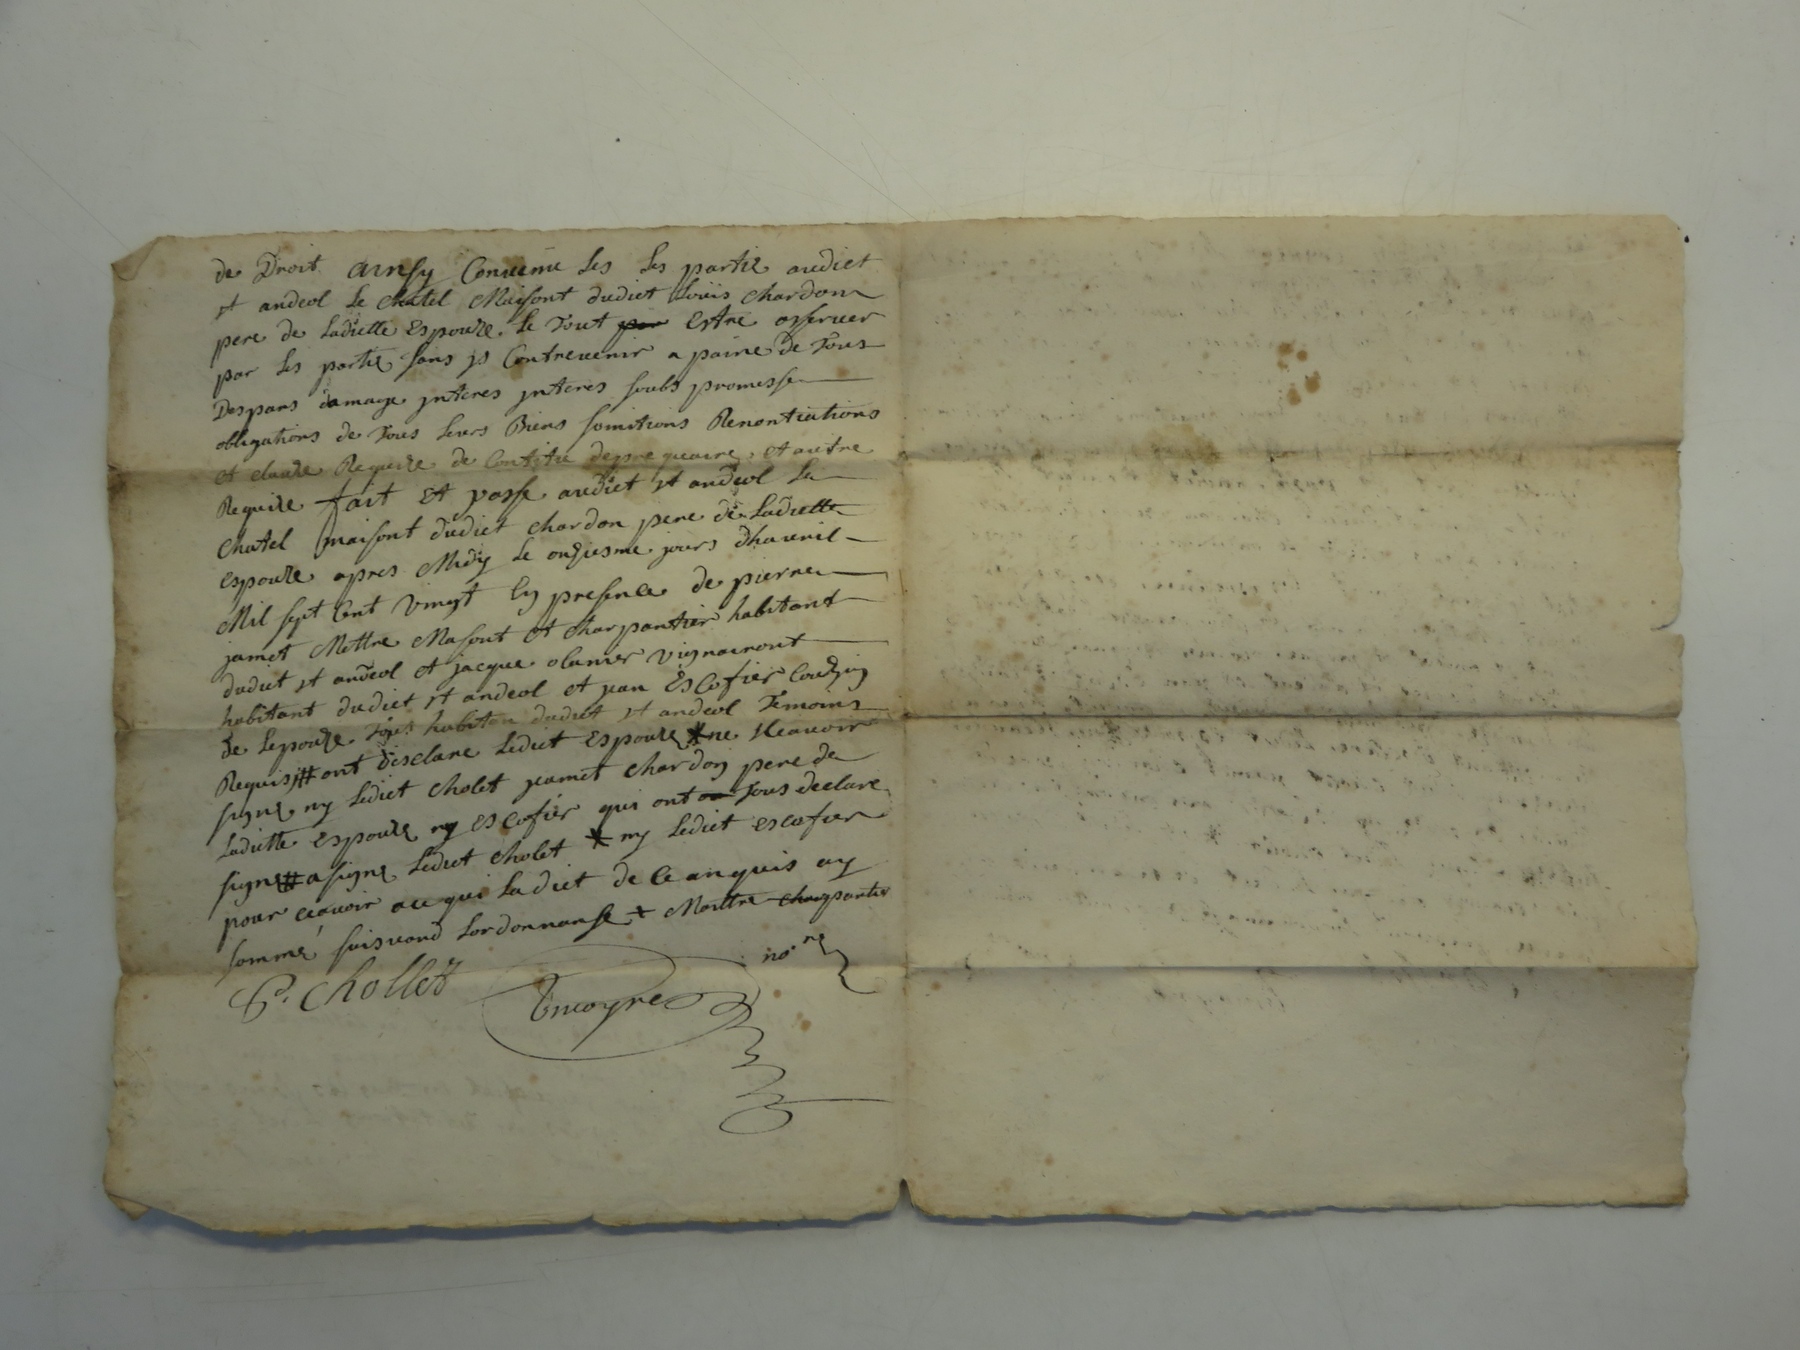 de Droit ainsy Conuenu les les partie audict
st andeol le chatel Maisont dudict Loüis chardon
pere de Ladictte Espouze. le Tout par Estre osseruer
par les partie sans js Contreuenir a paine de Tous
Despans damage jnteres jnteres soubs promesse
obligations de Tous leurs Biens somitions Renontiations
et clauze Requize de et autre
Requize fait et passe audict st andeol le
chatel maisont dudict chardon pere de Ladictte
espouze apres Midy le onziesme jours dhaueril
Mil sept Cent Vingt En presence de pierre
jamet Mettre Masont et charpantier habitant
dudict st andeol et jacque olanier Vignairont
habitant dudict st andeol et jean Escofier Couzin
de Lepouze Tous habitan dudict st andeol Temoins
Requis # ont desclare Ledict Espouze * ne sceauoir
signe ny Ledict Cholet jeamet chardon pere de
Ladictte Espouze ny escofier qui ont Tous declare
signe # a signe Ledict Cholet * ny Ledict escofier
pour ceauoir ace qui Ladict de ce anquis ay
somme suisuand Lordonnanse + Maittre charpantie
P. Chollet
no.re